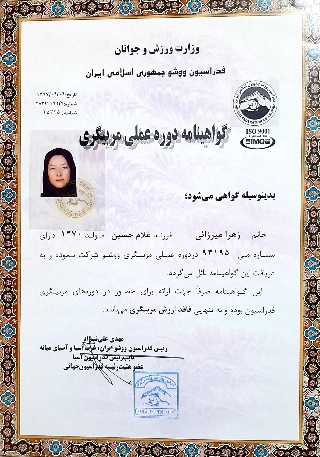 وزارت ورزش و جوانان
فدراسیون ووشو جمهوری اسلامی ایران
ISO 9001
SIMCE
گواهینامه دوره عملی مربیگری
بدینوسیله گواهی می‌شود؛
خانم زهرا میرزائی فرزند غلام حسین متولد ۱۳۷۰ دارای
شماره ملی ۹۴۱۹۵ در دوره عملی مربیگری ووشو شرکت نموده و به
دریافت این گواهینامه نائل می‌گردد.
این گواهینامه صرفاً جهت ارائه برای حضور در دوره‌های مربیگری
فدراسیون بوده و به تنهایی فاقد ارزش مربیگری می‌باشد.
مهدی علی نژاد
رئیس فدراسیون ووشو ایران، غرب آسیا و آسیای میانه
نایب رئیس فدراسیون آسیا
عضو هیئت رئیسه فدراسیون جهانی